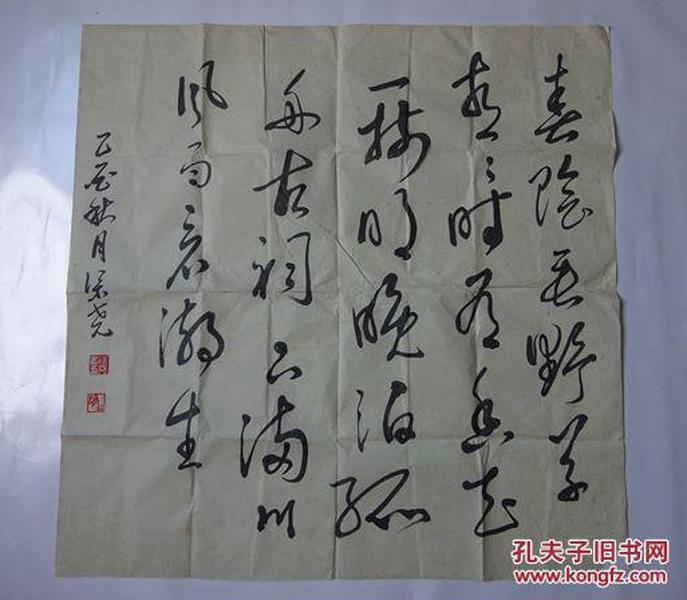 春陰垂野草
青々时有幽花
一樹明晚泊孤
舟古祠下满川
风雨看潮生
乙酉秋月
孔夫子旧书网
www.kongfz.com